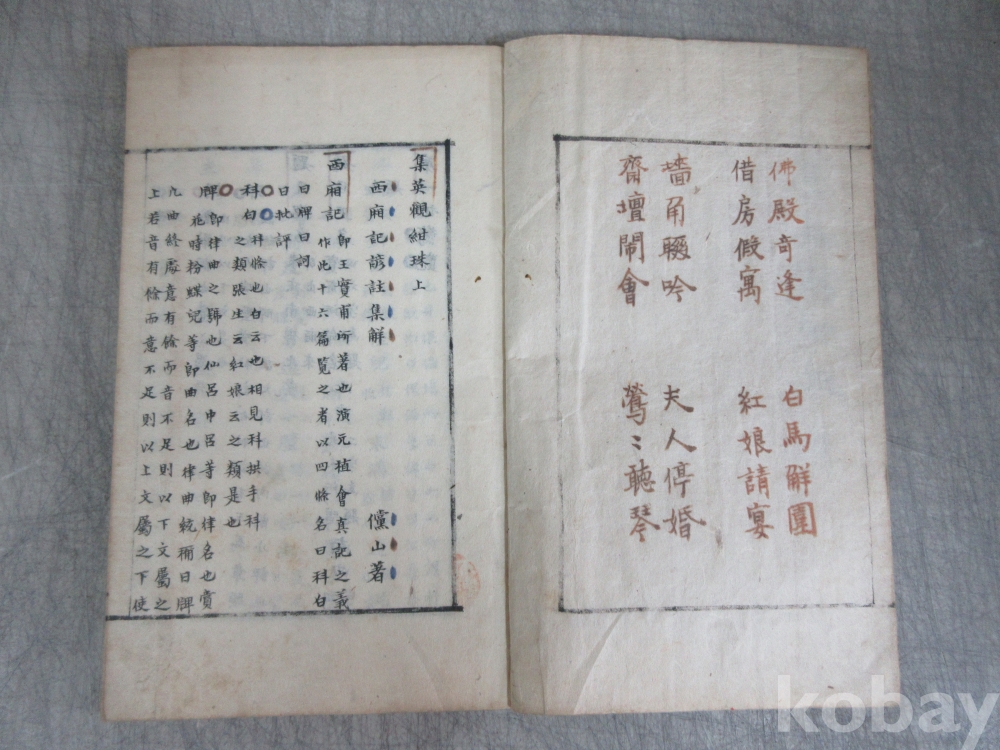 佛殿奇逢 白馬解圍
借房假寓 紅娘請宴
墻角聮吟 夫人停婚
齋壇鬧會 鶯〻聽琴
集英觀紺珠上
西廂記諺註集解 儻山著
西廂記 即王實甫所著也演元稹會真記之義
作此十六篇覽之者以四條名曰科白
曰牌曰詞
曰批評
科白 科條也白云也相見科拱手科
之類張生云紅娘云之類是也
牌 即律曲之號也仙呂中呂等即律名也賞
花時粉蝶兒等即曲名也律曲統稱曰牌
凡曲終處意有餘而音不足則以下文屬之
上若音有餘而意不足則以上文屬之下使
kobay